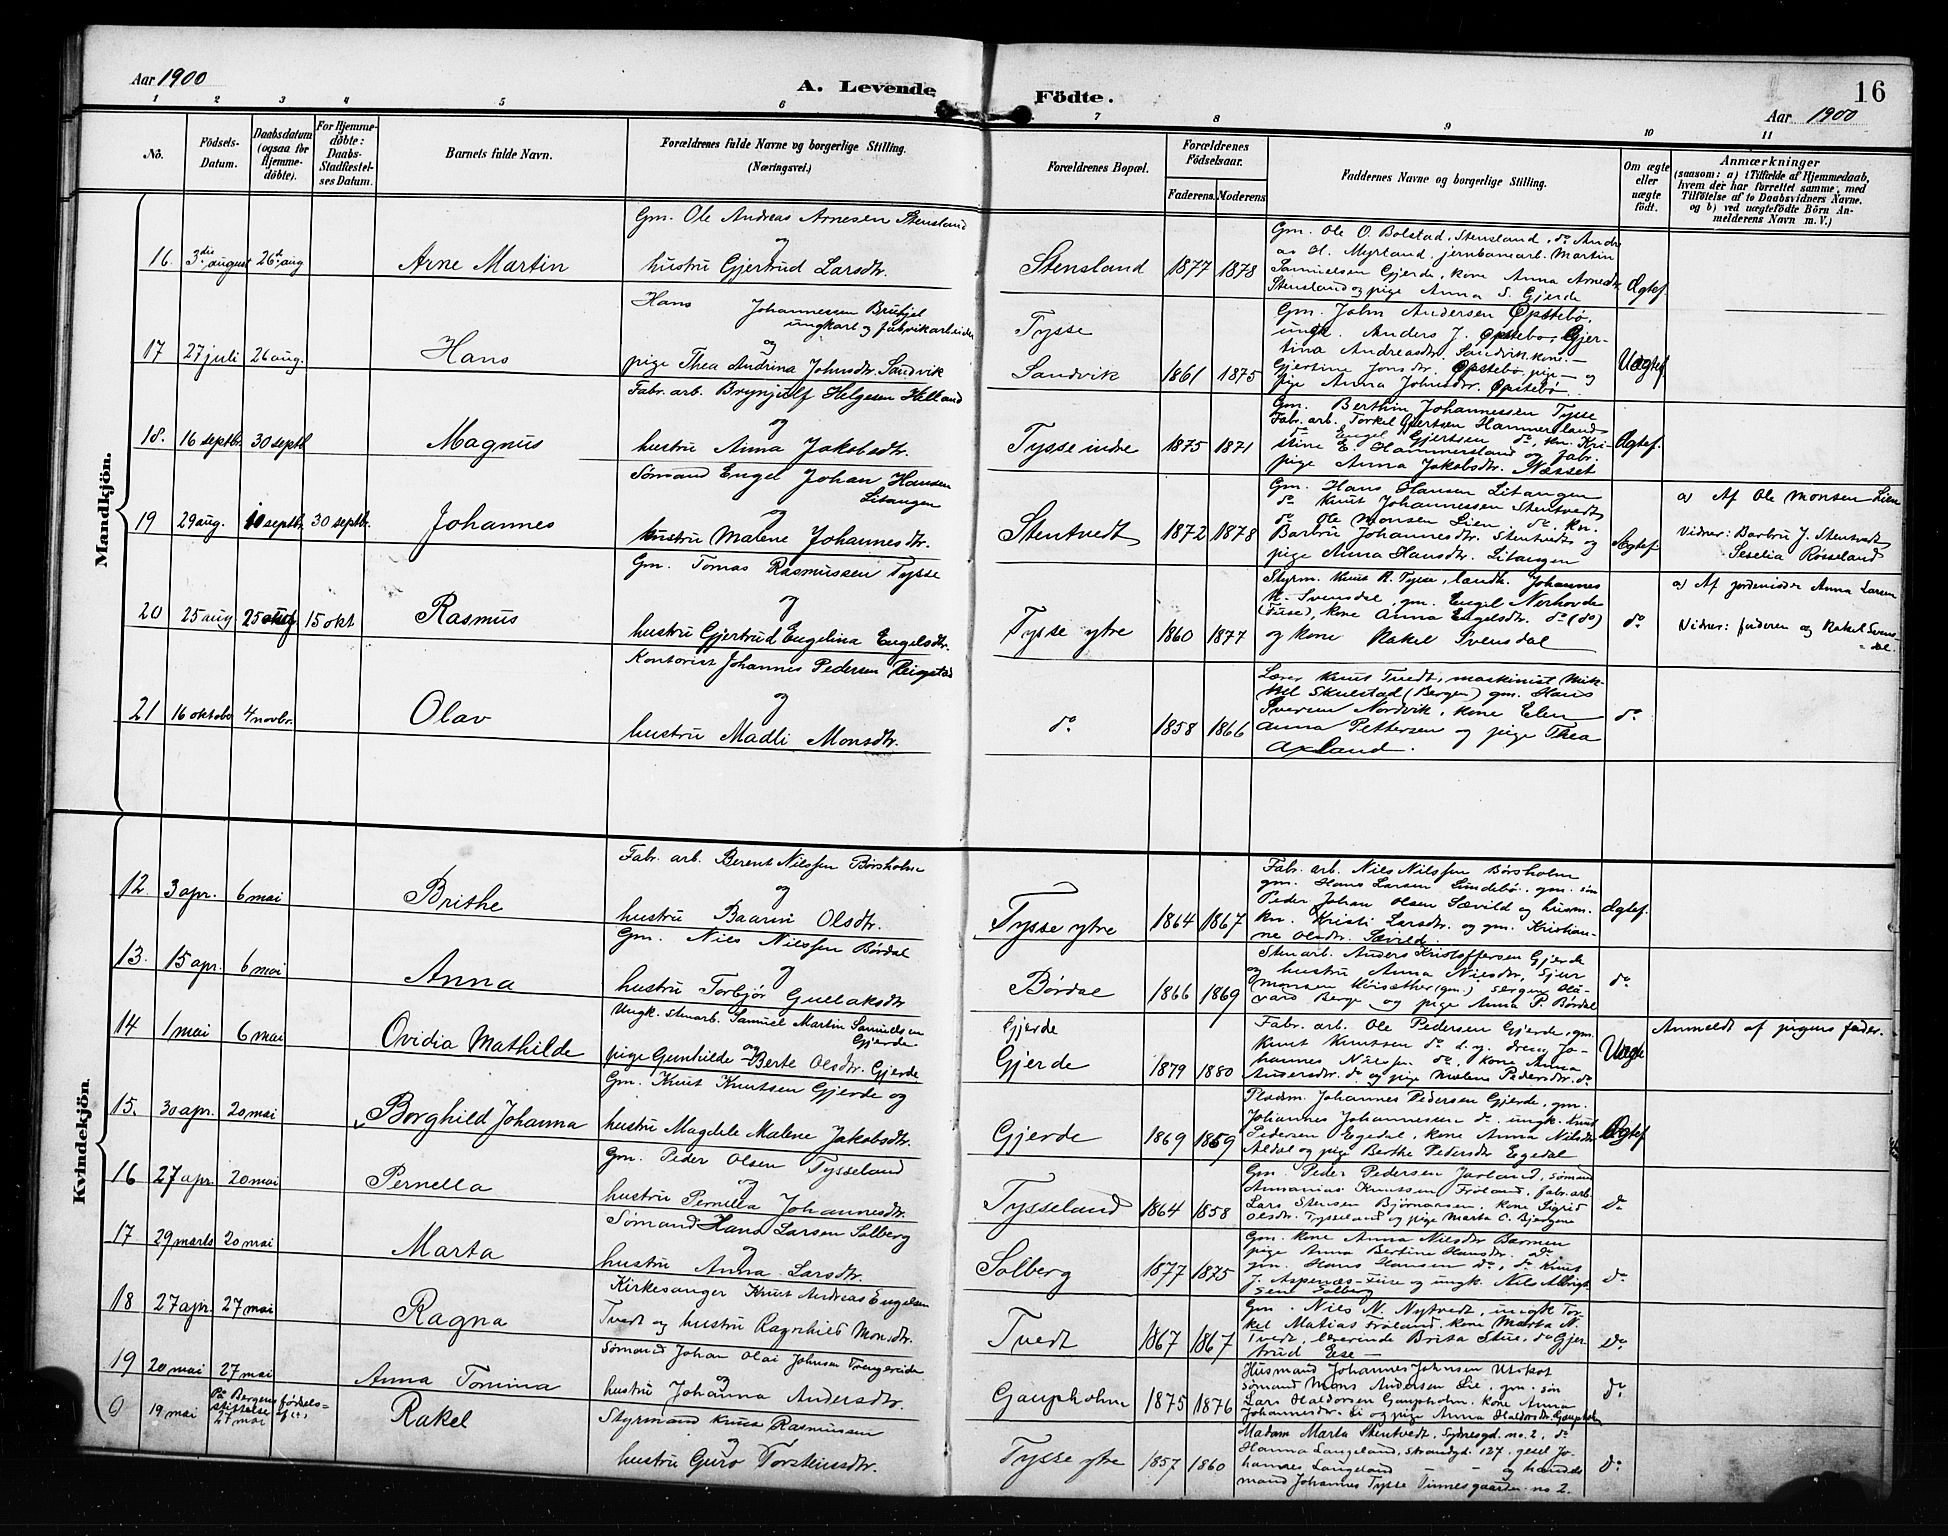 Aar 1900
A. Levende Födte.
16
Aar 1900
1 2 3 4 5 6 7 8 9 10 11
No.
Födsels-Datum.
Daabsdatum (ogsaa for Hjemmedöbte).
For Hjemmedöbte: Daabs-Stadfæstelses Datum.
Barnets fulde Navn.
Forældrenes fulde Navne og borgerlige Stilling. (Næringsvei.)
Forældrenes Bopæl.
Forældrenes Födselsaar.
Faderens. Moderens.
Faddernes Navne og borgerlige Stilling.
Om ægte eller uægte födt.
Anmærkninger
(saasom: a) i Tilfælde af Hjemmedaab,
hvem der har forrettet samme, med
Tilföielse af to Daabsvidners Navne.
og b) ved uægtefödte Börn An-
melderens Navn m. V.)
Mandkjön.
16. 3die august 26de aug Arne Martin
Gm. Ole Andreas Arnesen Stensland
og
hustru Gjertrud Larsdtr.
Stensland 1877 1878
Gm. Ole O. Bolstad, Stensland, do Andre
as O. Myrland, jernbanearb. Martin
Samuelsen Gjerde, kone Anna Arnesdtr
Stensland og pige Anna S. Gjerde
Ægtef.
17 27 juli 26 aug. Hans
Hans Johannessen
ungkarl og fabrikarbeider
og
pige Thea Andrina Johnsdtr. Sandvik
Tysse
Sandvik 1861 1875
Gm. John Andersen Opstebø,
ungk. Anders J. Opstebø, Gjer-
tina Andreasdtr. Sandvik kone. -
Gjertine Jonsdtr. Opstebø, pige - og
pige Anna Johnsdtr. Opstebø
Uægtef
18. 16 septbr. 30 septb Magnus
Fabr. arb. Brynjulf Helgesen Helland
og
hustru Anna Jakobsdtr.
Tysse indre 1875 1871
Gm. Berthin Johannessen Tysse
Fabr. arb. Torkel Gjertsen Hammersland
do Engel Gjertsen do, kn. Kri-
stine E. Hammersland og fabr.
pige Anna Jakobsdtr. Næsset
Ægtef.
19 29 aug. 10 septbr. 30 septbr. Johannes
Sømand Engel Johan Hansen
Litangen
og
hustru Malene Johannesdtr.
Stentvedt 1872 1878
Gm. Hans Hansen Litangen
do Knut Johannessen Stentvedt,
do Ole Monsen Lien, do, kn.
Barbru Johannesdtr. Stentvedt og
pige Anna Hansdtr. Litangen
Ægtef.
a) Af Ole Monsen Lien
Vidner: Barbru J. Stentvedt
Seselia Røsseland
20 25 aug 25 aug 15 okt Rasmus
Gm. Tomas Rasmussen Tysse
og
hustru Gjertrud Engelina Engelsdtr.
Tysse ytre 1860 1877
Styrm. Knut R. Tysse, landh. Johannes
K. Svensdal, gm. Engel Nerhovde
(Fuse), kone Anna Engelsdtr. do (do)
og kone Rakel Svensdal
do
a) Af jordemoder Anna Larsen
Vidner: faderen og Rakel Svens-
dal.
21 16 oktobr 4 novbr. Olav
Kontorist Johannes Pedersen
og
hustru Madli Monsdtr.
do 1858 1866
Lærer Knut Tvedt, maskinist Mik-
kel Skulstad (Bergen) gm. Hans
Iversen Nordvik, kone Elen
Anna Pettersen og pige Thea
Axland.
do
Kvindekjön.
12. 3 apr. 6 mai Brithe
Fabr. arb. Berent Nilssen Børsholm
og
hustru Baarni Olsdtr.
Tysse ytre 1864 1867
Fabr. arb. Nils Nilssen Børsholm
gm. Hans Larsen Lindebø, gm. søn
Peder Johan Olsen Sævild og husm.
kn. Kristi Larsdtr. og gm. Kristian-
ne Olsdtr. Sævild.
Ægtef.
13. 15 apr. 6 mai Anna
Gm. Nils Nilssen Børdal
og
hustru Torbjør Gullaksdtr
Børdal 1866 1869
Stenarb. Anders Kristoffersen Gjerde
og hustru Anna Nilsdtr, Sjur
Monsen (gm.)
Berge og pige Anna P. Børdal
do
14 1 mai 6 mai Ovidia Mathilde
Ungk. stenarb. Samuel Martin Samuelsen
Gjerde
og
pige Gunhilde Berte Olsdtr. Gjerde
Gjerde
Gjerde 1879 1880
Fabr. arb. Ole Pedersen Gjerde, gm.
Knut Knutsen do d.y. dreng Jo-
hannes Nilssen do, kone Anna
Andersdtr. do og pige Malene Pedersdtr. do
Uægte
Anmeldt af pigens fader.
15. 30 apr. 20 mai Borghild Johanna
Gm. Knut Knutsen Gjerde og
hustru Magdele Malene Jakobsdtr.
Gjerde 1869 1859
Pladsm. Johannes Pedersen Gjerde, gm.
Johannes Johannessen do, ungk. Knut
Pedersen Egedal, kone Anna Nilsdtr
Aldal og pige Berthe Pedersdtr Egedal
Ægtef
16 27 apr. 20 mai Pernella
Gm. Peder Olsen Tysseland
og
hustru Pernella Johannesdtr.
Tysseland 1864 1858
Gm. Peder Pedersen Jarland, sømand
Annanias Knutsen Frøland, fabr. arb.
Lars Stensen Bjørnaasen, kone Sigrid
Olsdtr. Tysseland og pige Marta C. Bjergene
do
17 29 marts 20 mai Marta
Sømand Hans Larsen Solberg
og
hustru Anna Larsdtr.
Solberg 1877 1875
Gm. kone Anna Nilsdtr Barmen
pige Anna Bertine Hansdtr. do
gm. Hans Hansen do, do Knut
J. Aspenæs-Fuse og ungk. Nils Albrigt-
sen Solberg
do
18 27 apr. 27 mai Ragna
Kirkesanger Knut Andreas Engelsen
Tvedt og hustru Ragnhild Monsdtr.
Tvedt 1867 1867
Gm. Nils N. Nytvedt, ungk Tor-
kel Matias Frøland, kone Marta N.
Tvedt, lærerinde Brita Stue, do Gjer
trud Eie -
do
19 20 mai 27 mai Anna Tomina
Sømand Johan Olai Johnsen Trengereide
og
hustru Johanna Andersdtr.
Gaupholm 1875 1876
Husmand Johannes Johnsen Utskot
sømand Mons Andersen Lie, gm. søn
Lars Haldorsen Gaupholm, kone Anna
Johannesdtr. Li og pige Anna Haldorsdtr. Gaupholm
do
0 19 mai På Bergens fødsels-
stiftelse
27 mai
Rakel
Styrmand Knut Rasmussen
og
hustru Guro Torsteinsdtr.
Tysse ytre 1857 1860
Madam Marta Stentvedt, Sydnesgd. no. 2, do
Hanna Langeland, Strandgd. 127, gesel Jo-
hannes Langeland - - og handels
mand Johannes Tysse Vinnesgaarden no 2.
do